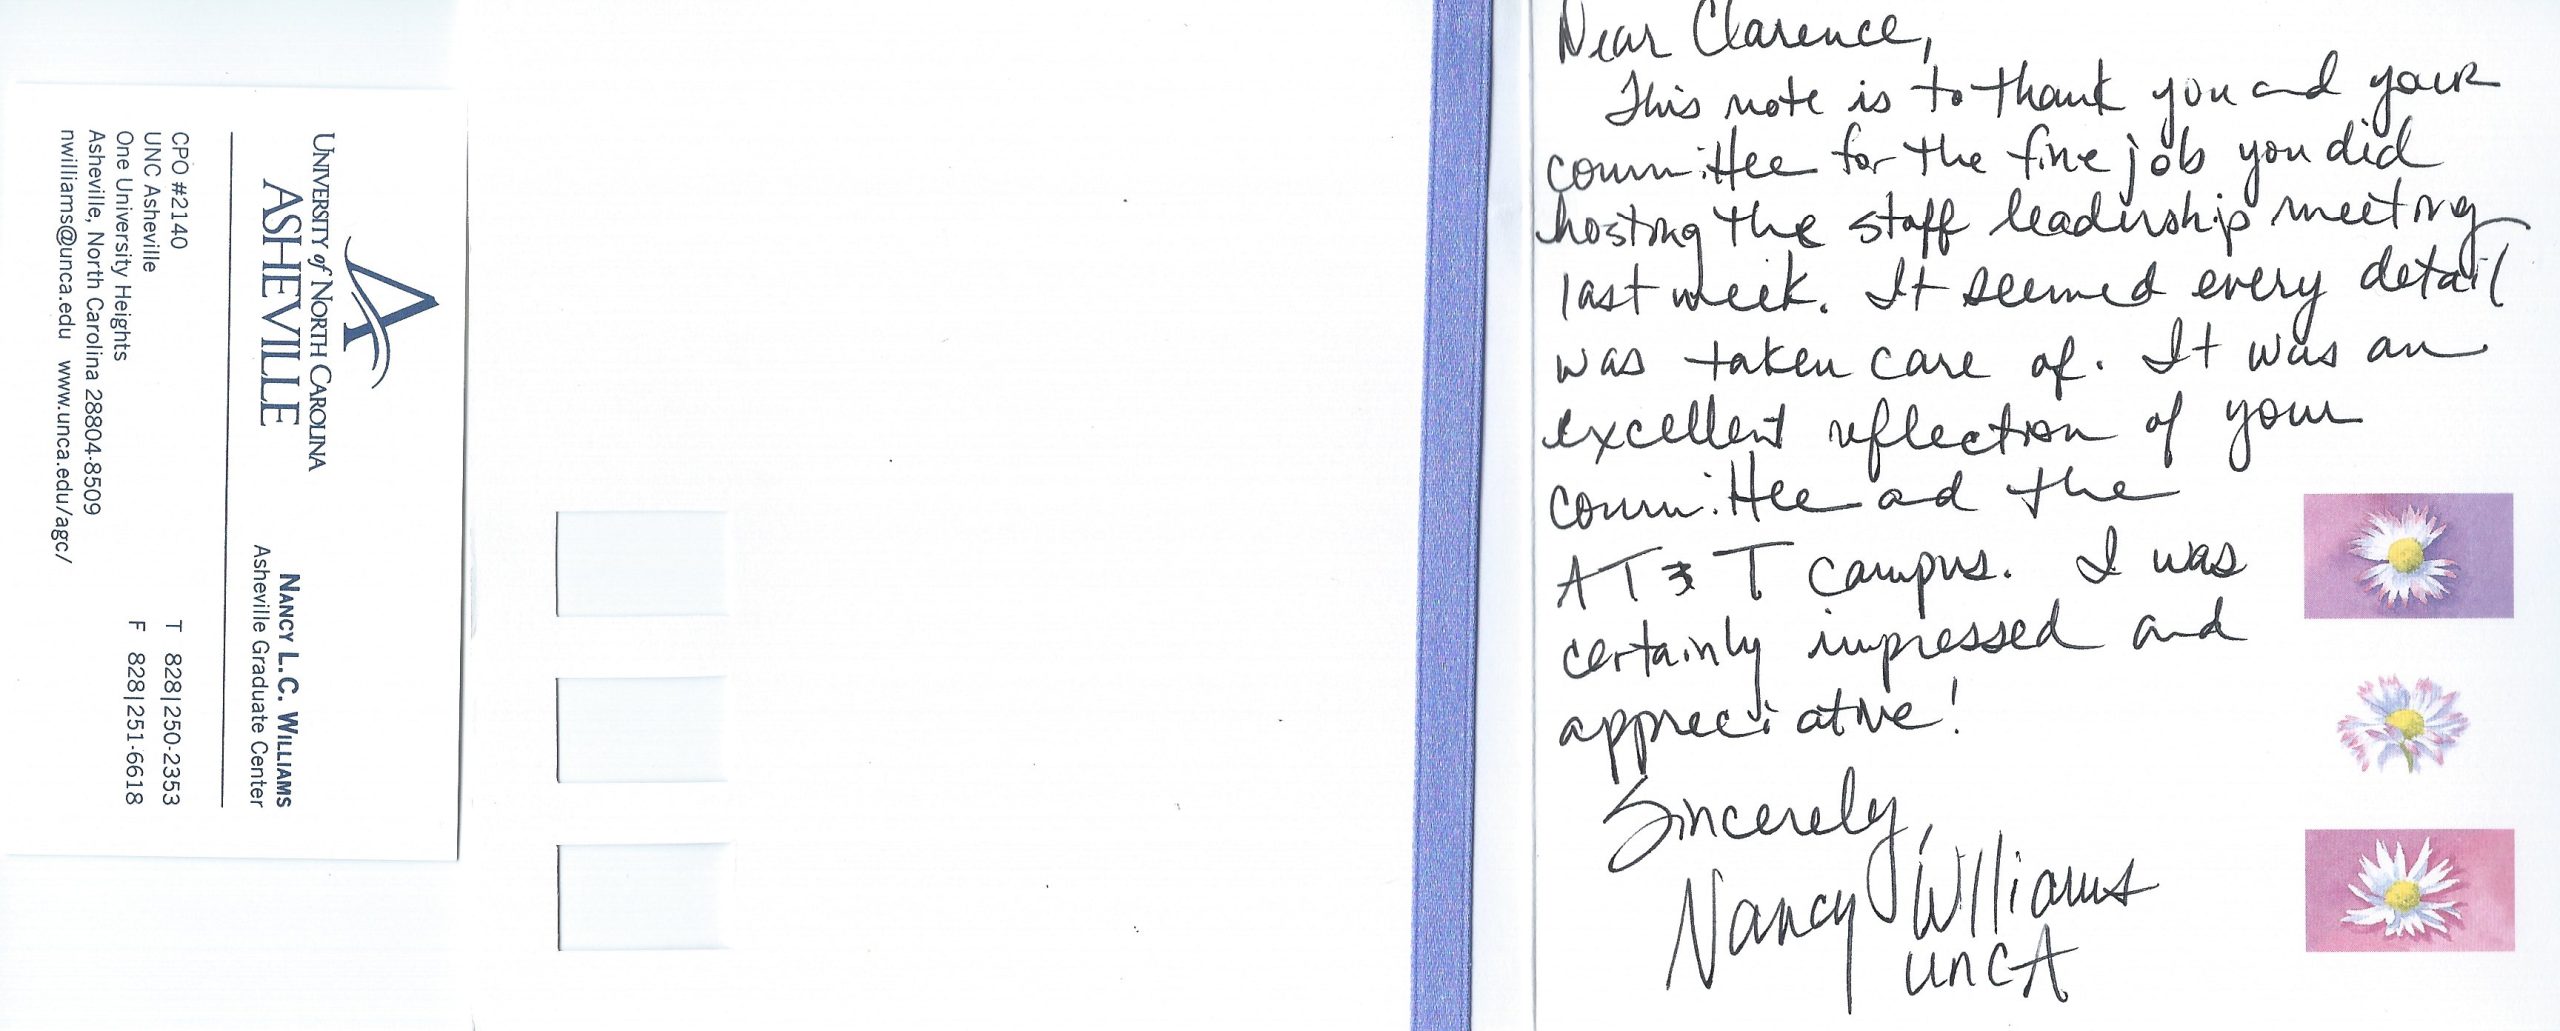 UNIVERSITY of NORTH CAROLINA
ASHEVILLE
NANCY L.C. WILLIAMS
Asheville Graduate Center
CPO #2140
UNC Asheville
One University Heights
Asheville, North Carolina 28804-8509
nwilliams@unca.edu www.unca.edu/agc/
T 828|250-2353
F 828|251-6618
Dear Clarence,
This note is to thank you and your
committee for the fine job you did
hosting the staff leadership meeting
last week. It seemed every detail
was taken care of. It was an
excellent reflection of your
committee and the
AT&T campus. I was
certainly impressed and
appreciative!
Sincerely,
Nancy Williams
UNCA